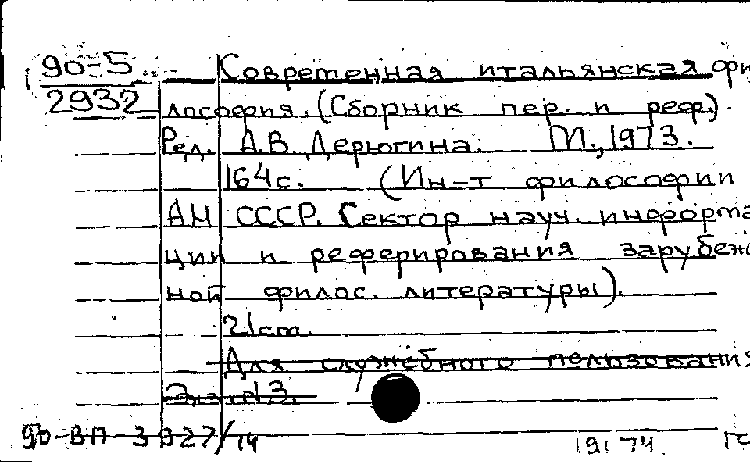 90-5 Современная итальянская фи
2932 лософия. (Сборник пер. и реф.)
Ред. А.В. Дерюгина. М., 1973.
164 с. (Ин-т философии
АН СССР. Сектор науч. информа
ции и реферирования зарубеж
ной филос. литературы).
21 см.
Для служебного пользования
Экз. №3.
90-ВП-3927/74
191 74.